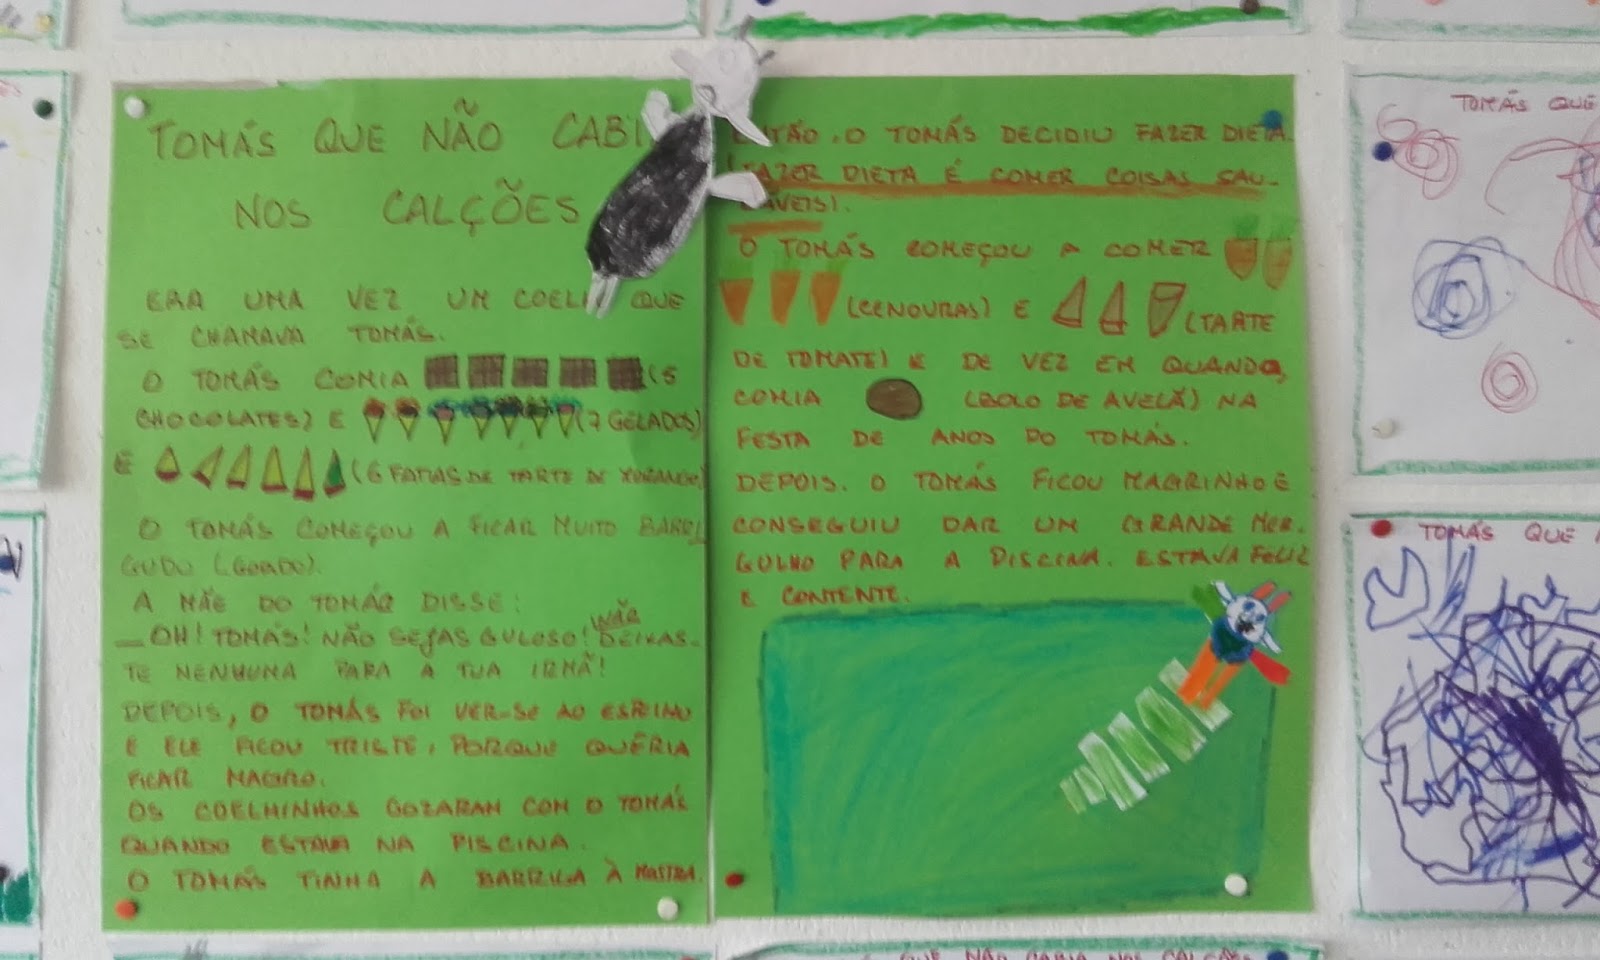 TOMÁS QUE NÃO CABI
NOS CALÇÕES
ERA UMA VEZ UM COELH QUE
SE CHAMAVA TOMÁS.
O TOMÁS COMIA (5
CHOCOLATES) E (7 GELADOS)
E (6 FATIAS DE TARTE DE MORANGO)
O TOMÁS COMEÇOU A FICAR MUITO BARRI
GUDO (GORDO).
A MÃE DO TOMÁS DISSE:
— OH! TOMÁS! NÃO SEJAS GULOSO! NÃO DEIXAS-
TE NENHUMA PARA A TUA IRMÃ!
DEPOIS, O TOMÁS FOI VER-SE AO ESPELHO
E ELE FICOU TRISTE, PORQUE QUERIA
FICAR MAGRO.
OS COELHINHOS GOZARAM COM O TOMÁS
QUANDO ESTAVA NA PISCINA.
O TOMÁS TINHA A BARRIGA À MOSTRA.
ENTÃO, O TOMÁS DECIDIU FAZER DIETA.
(FAZER DIETA É COMER COISAS SAU-
DÁVEIS).
O TOMÁS COMEÇOU A COMER
(CENOURAS) E (TARTE
DE TOMATE) E DE VEZ EM QUANDO,
COMIA (BOLO DE AVELÃ) NA
FESTA DE ANOS DO TOMÁS.
DEPOIS. O TOMÁS FICOU MAGRINHO E
CONSEGUIU DAR UM GRANDE MER-
GULHO PARA A PISCINA. ESTAVA FELIZ
E CONTENTE.
TOMÁS QUE
TOMÁS QUE
QUE NÃO CABIA NOS CALÇÕES